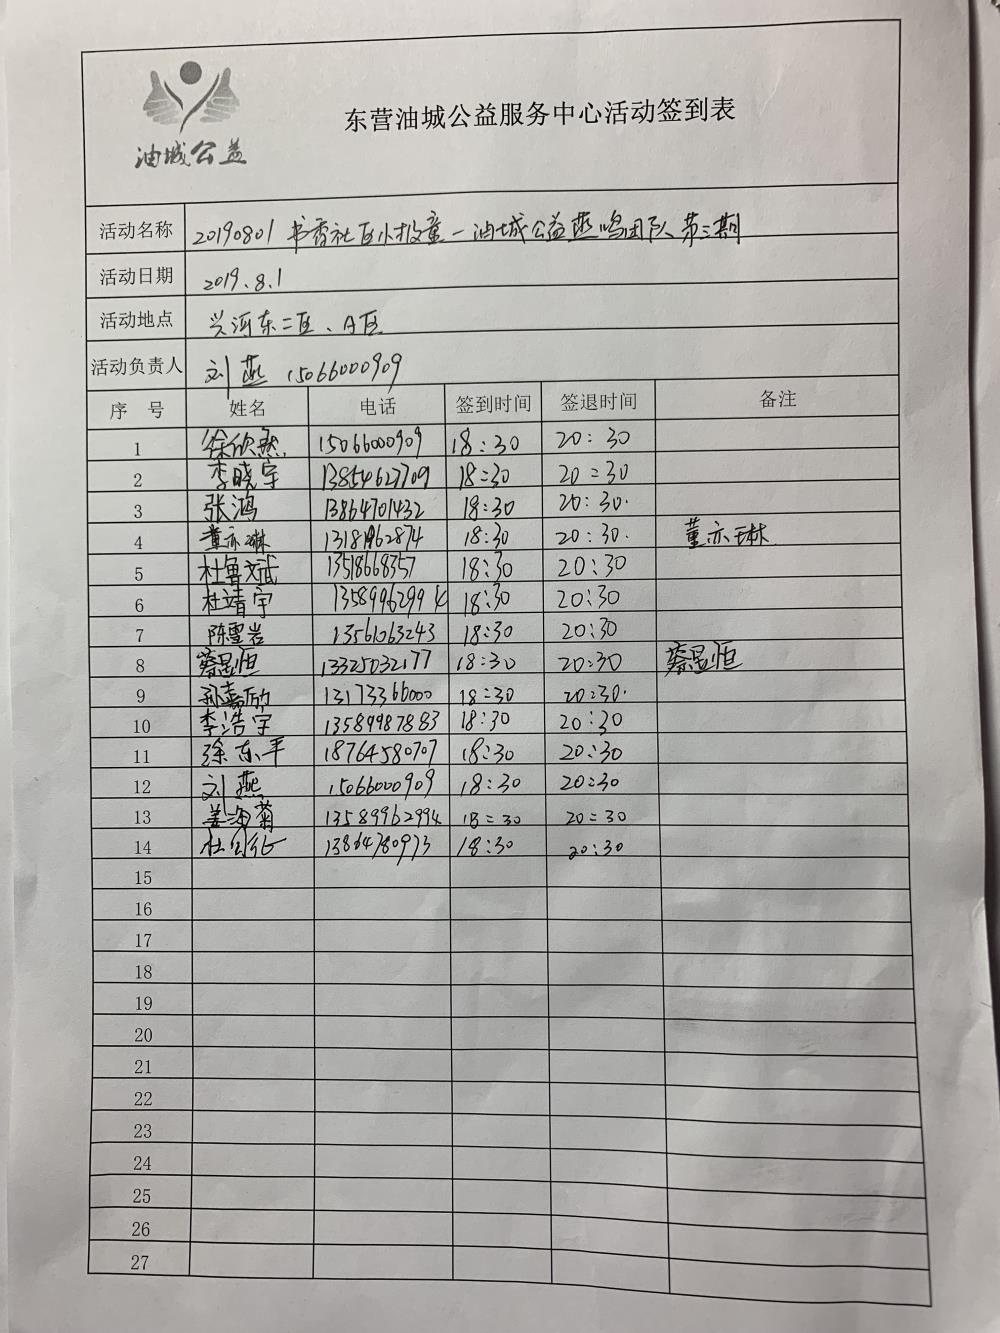 油城公益
东营油城公益服务中心活动签到表
活动名称 20190801 书香社区小报童-油城公益燕鸣团队第三期
活动日期 2019.8.1
活动地点 兴河东二区、A区
活动负责人 刘燕 15066000909
序号 姓名 电话 签到时间 签退时间 备注
1 徐欣然 15066000909 18:30 20:30
2 李晓宇 13854627709 18:30 20:30
3 张鸿 13864701432 18:30 20:30.
4 董亦琳 13181962874 18:30 20:30. 董亦琳
5 杜鲁斌 13518668357 18:30 20:30
6 杜靖宇 13589962994 18:30 20:30
7 陈雪岩 13561063243 18:30 20:30
8 蔡昱恒 13325032177 18:30 20:30 蔡昱恒
9 孙嘉励 13173366000 18:30 20:30.
10 李浩宇 13589987883 18:30 20:30
11 徐东平 18764580707 18:30 20:30
12 刘燕 15066000909 18:30 20:30
13 姜海菊 13589962994 18:30 20:30
14 杜 13864780973 18:30 20:30
15
16
17
18
19
20
21
22
23
24
25
26
27